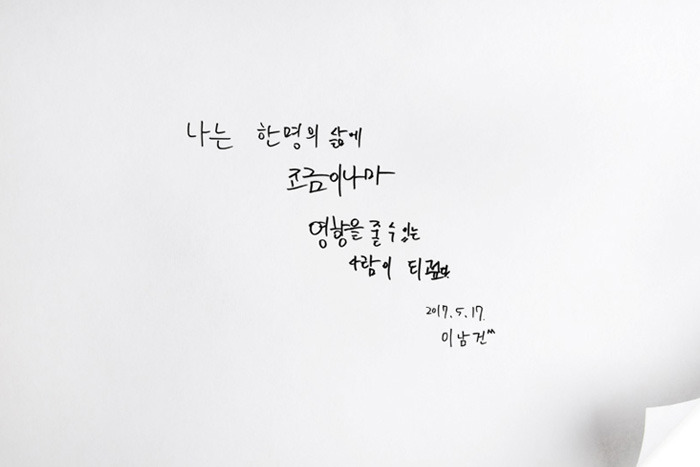 나는 한명의 삶에
조금이나마
영향을 줄 수 있는
사람이 되고싶다
2017.5.17.
이남건^^